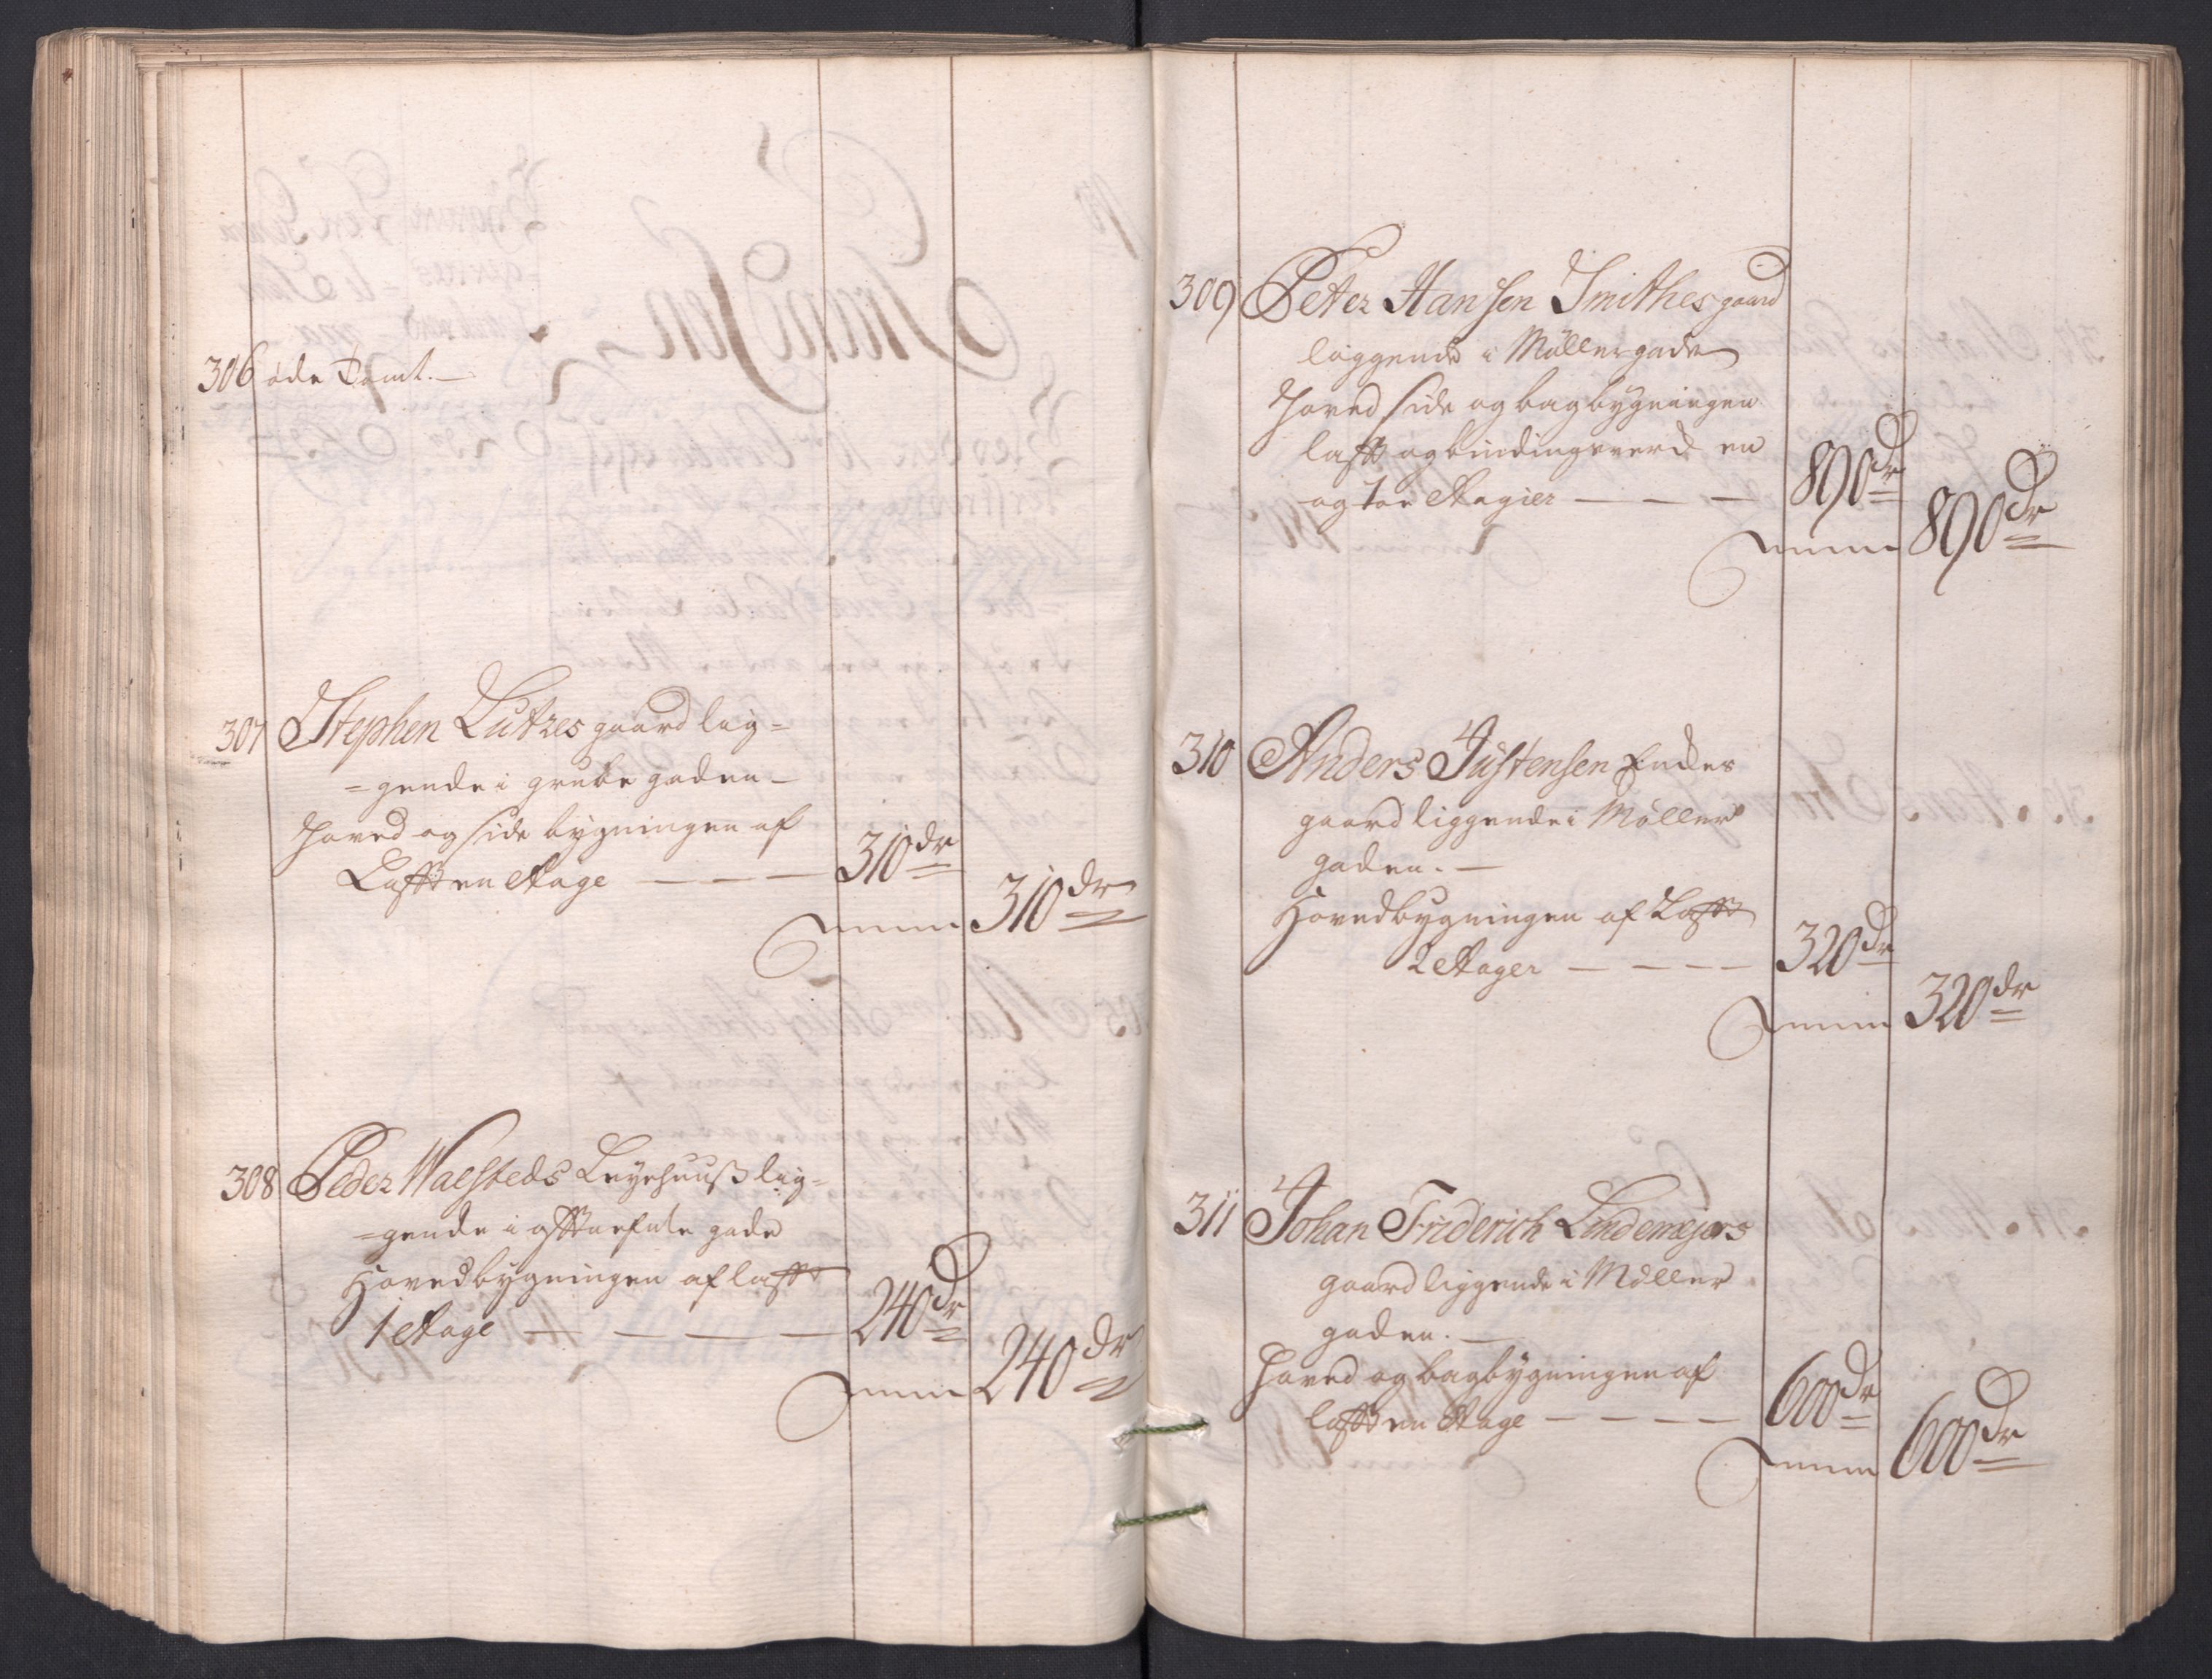 306 øde Tomt. —
307 Stephen Lutzes gaard lig=
=gende i grube gaden —
Hoved og side bygningen af
Lafft en Etage — — — 310 dr
Summa 310 dr
308 Peder Walsteds Leyehuuß lig=
=gende i
gade
Hovedbygningen af lafft
1 Etage — — — — 240 dr
Summa 240 dr
309 Peter Hansen Smithes gaard
liggende i Møllergade
Hoved side og bagbygningen
lafft og bindingsverck en
og toe Etagier — — — 890 dr
Summa 890 dr
310 Anders Justensen Enckes
gaard liggende i Møller
gaden. —
Hovedbygningen af Lafft
2 Etager — — — — 320 dr
Summa 320 dr
311 Johan Friderich Lindemejers
gaard liggende i Møller
gaden. —
Hoved og bagbygningen af
lafft en Etage — — — — 600 dr
Summa 600 dr